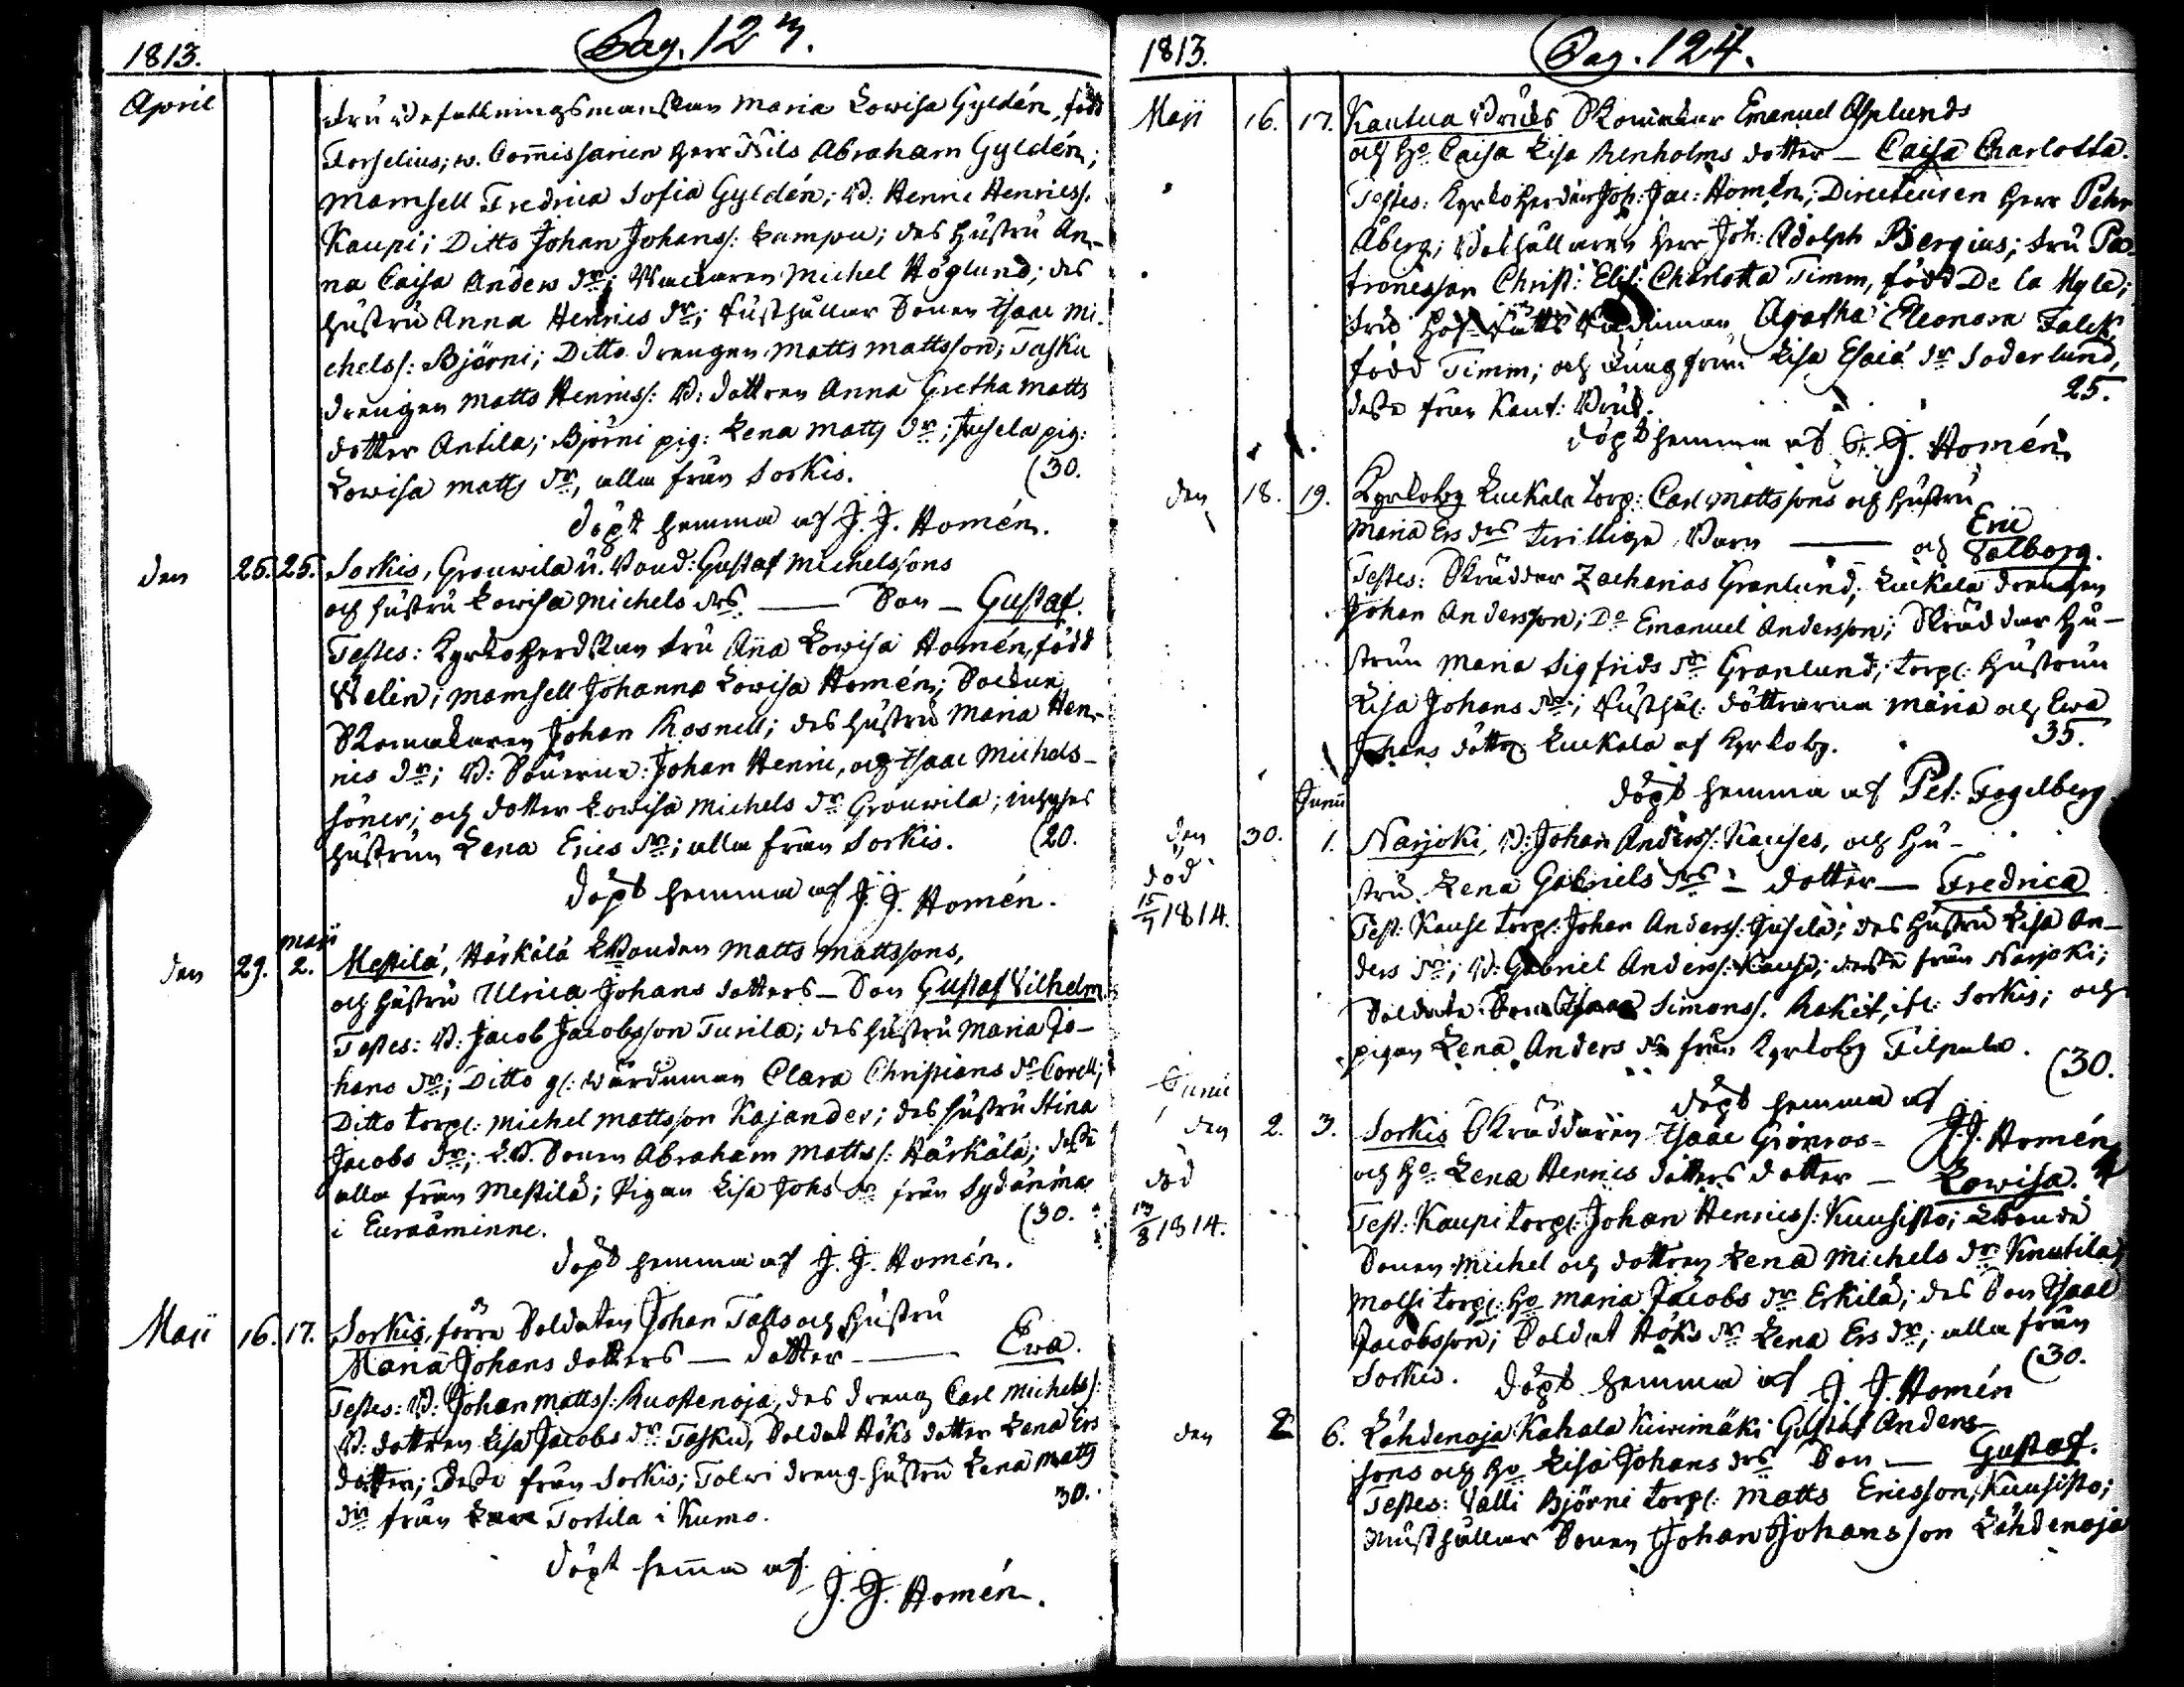 1813.
Pag. 123.
April
Fru Befallningsmanskan Maria Lowisa Gyldén, född
Forselius; w. Comissarien Herr Nils Abraham Gyldén;
Mamsell Fredrica Sofia Gyldén; B: Henric Henricss:
Kaupi; Ditto Johan Johanss: Lampu; des Hustru An-
na Caisa Anders dr; Michel Höglund; des
Hustru Anna Henrics dr; Rusthållar Sonen Isaac Mi-
chelss: Björni; Ditto Drengen Matts Mattsson; Tasku
Drengen Matts Henricss: B: dottren Anna Gretha Matts
dotter Antila; Björni pig: Lena Matts dr; Jusela pig:
Lowisa Matts dr, alla från Sorkis. (30.
döpt hemma af J. J. Homén.
den 25. 25. Sorkis, Grouwila Bond: Gustaf Michelssons
och Hustru Lowisa Michels drs — Son — Gustaf.
Testes: Kyrkoherdskan Fru Aña Lowisa Homén, född
Welin; Mamsell Johanna Lowisa Homén; Sockne
Skomakaren Johan Rosnell; des Hustru Maria Hen-
rics dr; B: Sönerne: Johan Henric, och Isaac Michels-
söner; och dotter Lowisa Michels dr Grouwila; inhyses
Hustrun Lena Erics dr; alla från Sorkis. (20.
döpt hemma af J. J. Homén.
Maji
den 29. 2. Mestilä, Härkälä LBonden Matts Mattssons,
och Hustru Ulrica Johans dotters — Son Gustaf Vilhelm
Testes: B: Jacob Jacobsson Turila; des Hustru Maria Jo-
hans dr; Ditto gl: Wärdinnan Clara Christians dr Corell;
Ditto torp: Michel Mattsson Kajander; des Hustru Stina
Jacobs dr; L.B. Sonen Abraham Mattss: Härkälä; desse
alla från Mestilä; Pigan Lisa Johs dr från Sydänma
i Euraåminne. (30.
döpt hemma af J. J. Homén.
Maji 16. 17. Sorkis, förra Soldaten Johan Talls och Hustru
Maria Johans dotters — dotter — Ewa.
Testes: B: Johan Mattss: Ruostenoja, des dreng Carl Michelss:
B: dottren Lisa Jacobs dr Tasku, Soldat Höks dotter Lena Ers
dotter; desse från Sorkis; Talwi dreng Hustru Lena Matts
dr från Tortila i Kumo. 30.
döpt hem̃a af
J. J. Homén.
1813.
Pag. 124.
Maji 16. 17. Kautua Bruks Skomakar Emanuel Asplunds
och Ho Caisa Lisa Renholms dotter — Caisa Charlotta.
Testes: Kyrkoherden Joh: Jac: Homén; Directeuren Herr Pehr
Åberg; Bokhållaren Herr Joh: Adolph Bergius; Fru Pa-
tronessan Christ: Elis: Charlotta Timm, född De la Myle;
Agatha Eleonora Falck
född Timm; och Jungfrun Lisa Esaiä dr Söderlund,
desse från Kaut: Bruk. 25.
döpt hemma af J. J. Homén
den 18. 19. Kyrkoby Luckala torp: Carl Mattssons och Hustru
Maria Ers drs twillinge Barn — Eric
och Valborg.
Testes: Skräddar Zacharias Granlund; Luckala Drengen
Johan Andersson; Do Emanuel Andersson; Skräddar Hu-
strun Maria Sigfrids dr Granlund; torp: Hustrun
Lisa Johans dr; Rusthål: döttrarna Maria och Ewa
Johans döttr Luckala af Kyrkoby. 35.
döpt hemma af Pet: Fogelberg
Junii
den 30. 1. Narjoki, B: Johan Anderss: Kauses, och Hu-
död
15/7 1814.
stru Lena Gabriels drs — dotter — Fredrica
Test: Kause torp: Johan Anderss: Jusela; des Hustru Lisa An-
ders dr; B: Gabriel Anderss: Kause; desse från Narjoki;
Soldate Son Isaac Simonss. Raket, ifr: Sorkis; och
pigan Lena Anders dr från Kyrkoby Filpula. (30.
döpt hemma af
J. J. Homén
Junii
den 2. 3. Sorkis Skräddaren Isaac Grönros
och Ho Lena Henrics dotters dotter — Lowisa.
död
13/8 1814.
Test: Kaupi torp: Johan Henricss: Kuusisto; LBonde
Sonen Michel och dottren Lena Michels dr Knutila;
Molsi torp: Ho Maria Jacobs dr Erkilä; des Son Isaac
Jacobsson; Soldat Höks dr Lena Ers dr; alla från
Sorkis. (30.
döpt hemma af J. J. Homén
den 2 6. Löhdenoja Kahala Kiwimäki Gustaf Anders-
sons och Ho Lisa Johans drs Son — Gustaf.
Testes: Valli Björni torp: Matts Ericsson, Kuusisto;
Rusthållar Sonen Johan Johansson Lähdenoja